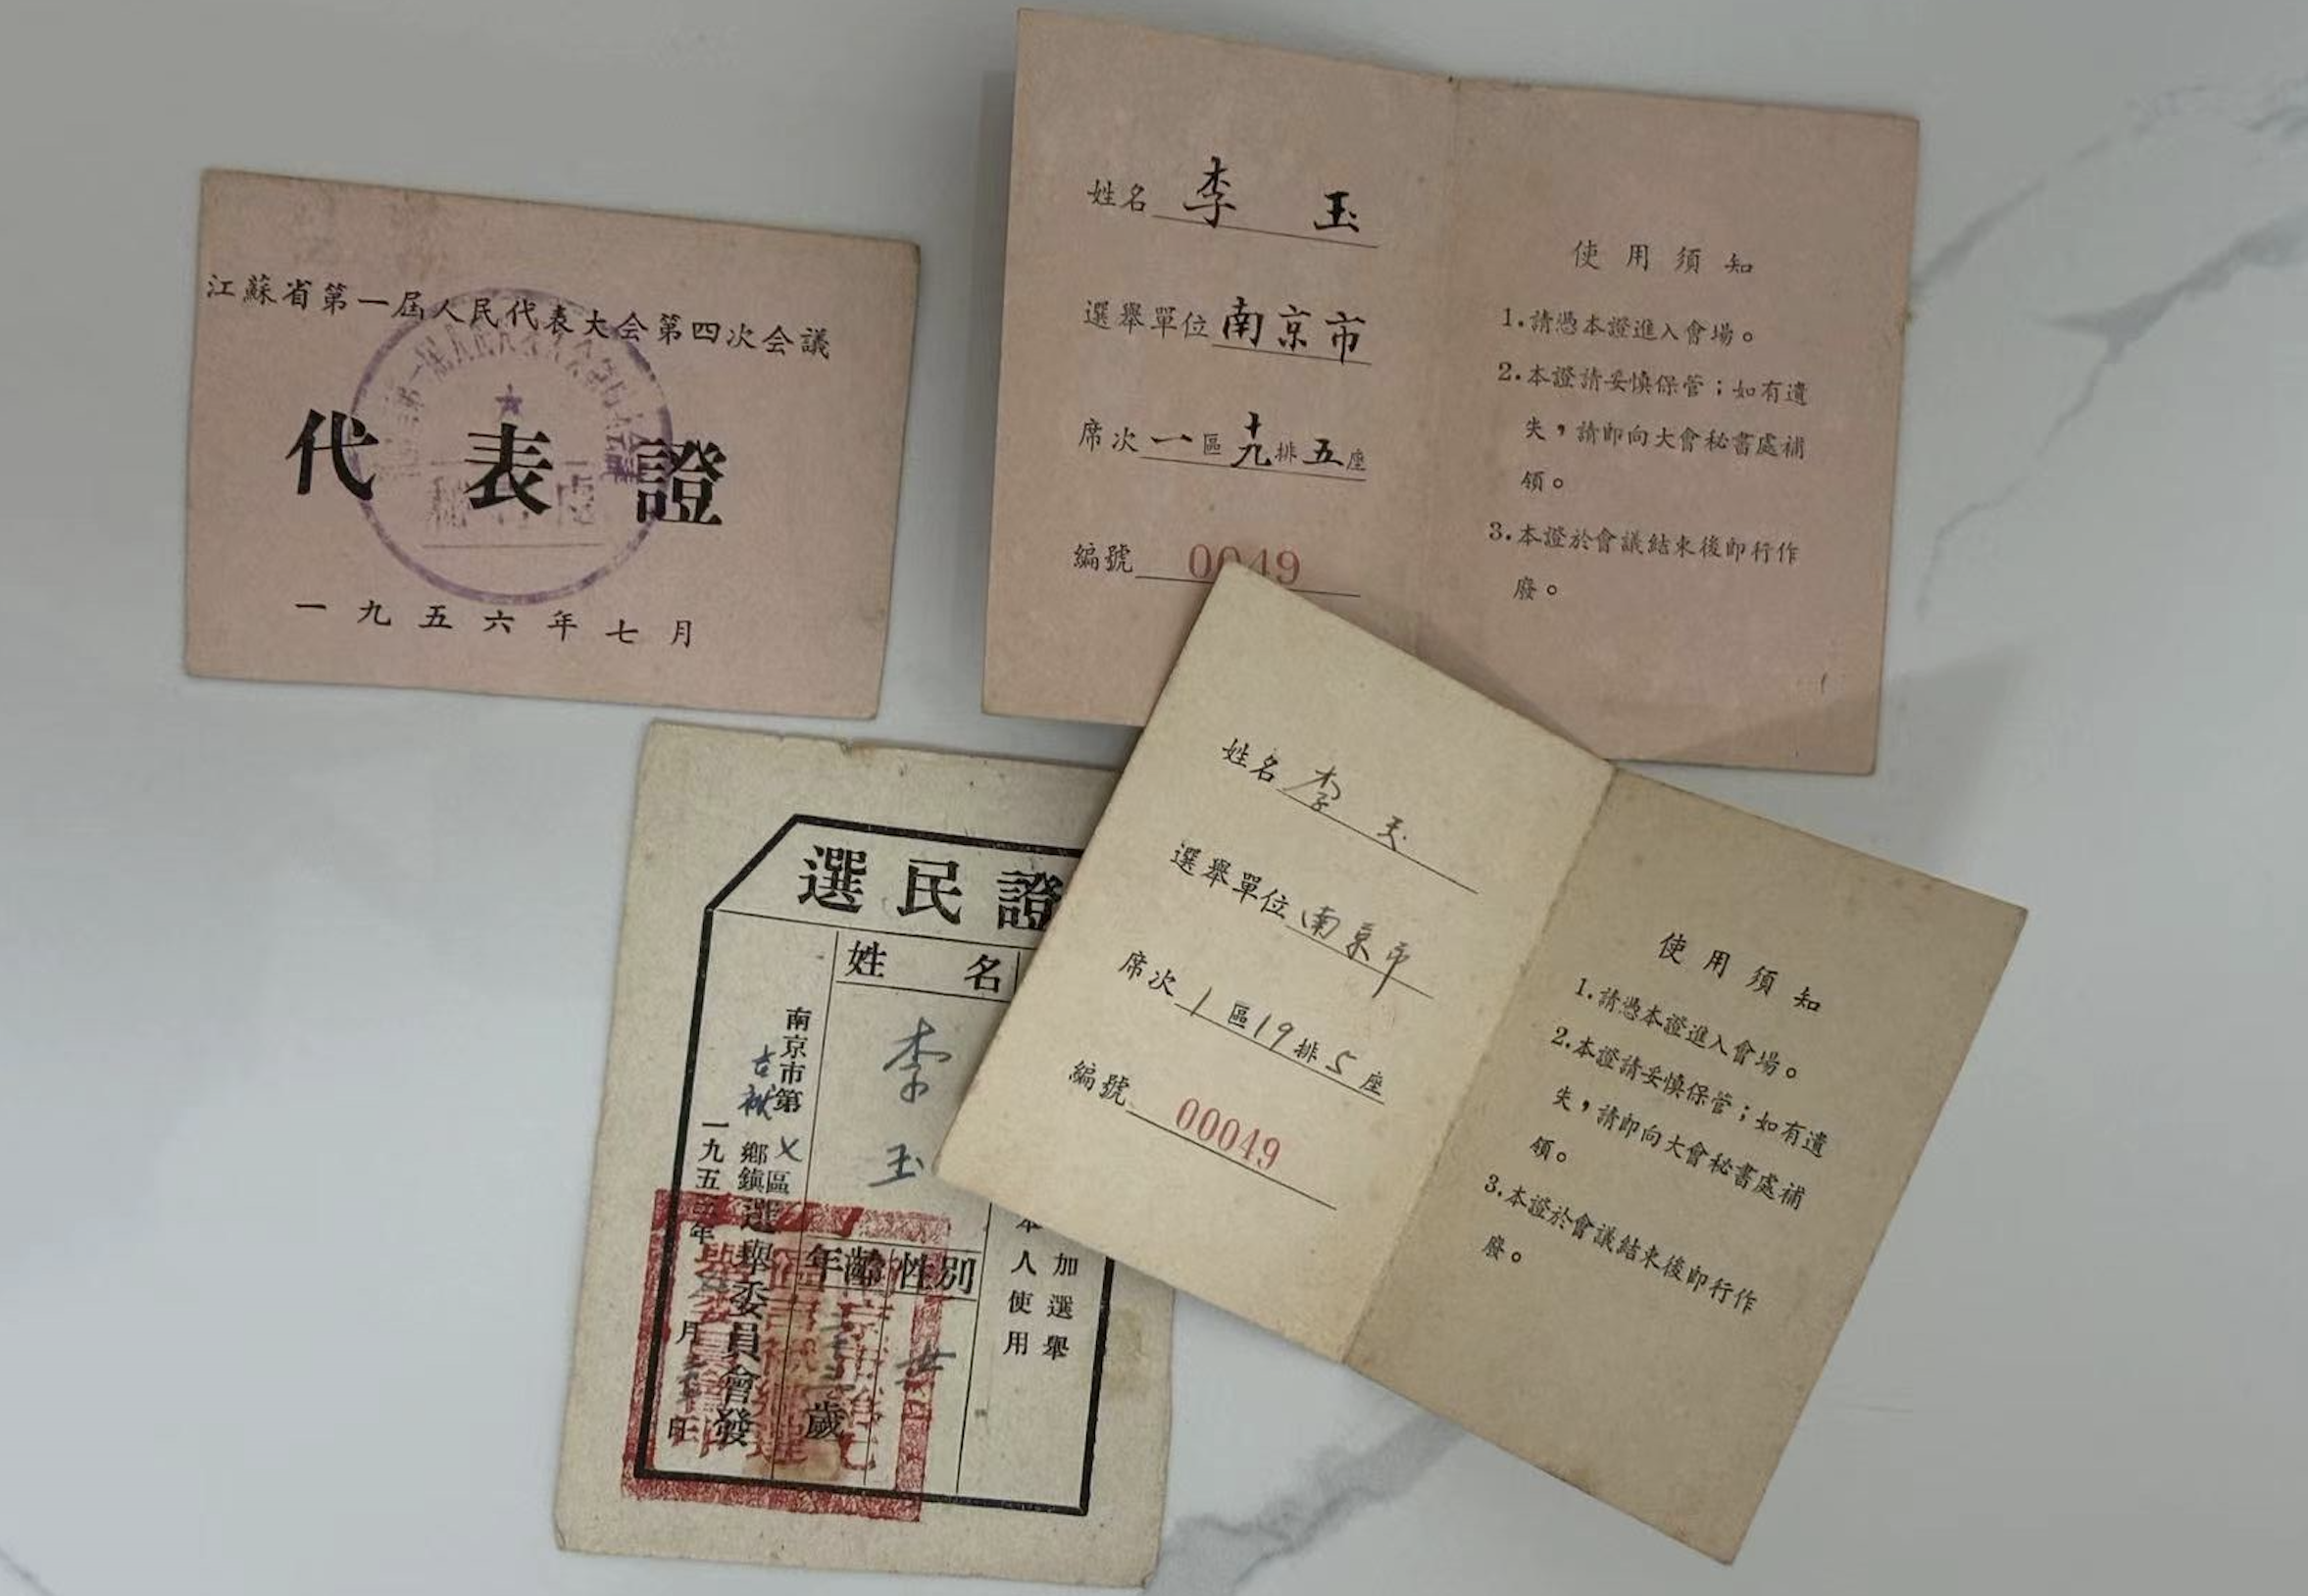 江蘇省第一屆人民代表大会第四次会議
代表證
一九五六年七月
姓名 李玉
選舉單位 南京市
席次 一區十九排五座
編號 0049
使用須知
1.請憑本證進入會場。
2.本證請妥慎保管；如有遺
失，請即向大會秘書處補
領。
3.本證於會議結束後即行作
廢。
選民證
姓名
李玉
年齡 性別
歲
女
加選舉
本人使用
南京市第乂區
鄉鎮選舉委員會發
一九五三年
月
日
姓名 李玉
選舉單位 南京市
席次 1區19排5座
編號 00049
使用須知
1.請憑本證進入會場。
2.本證請妥慎保管；如有遺
失，請即向大會秘書處補
領。
3.本證於會議結束後即行作
廢。